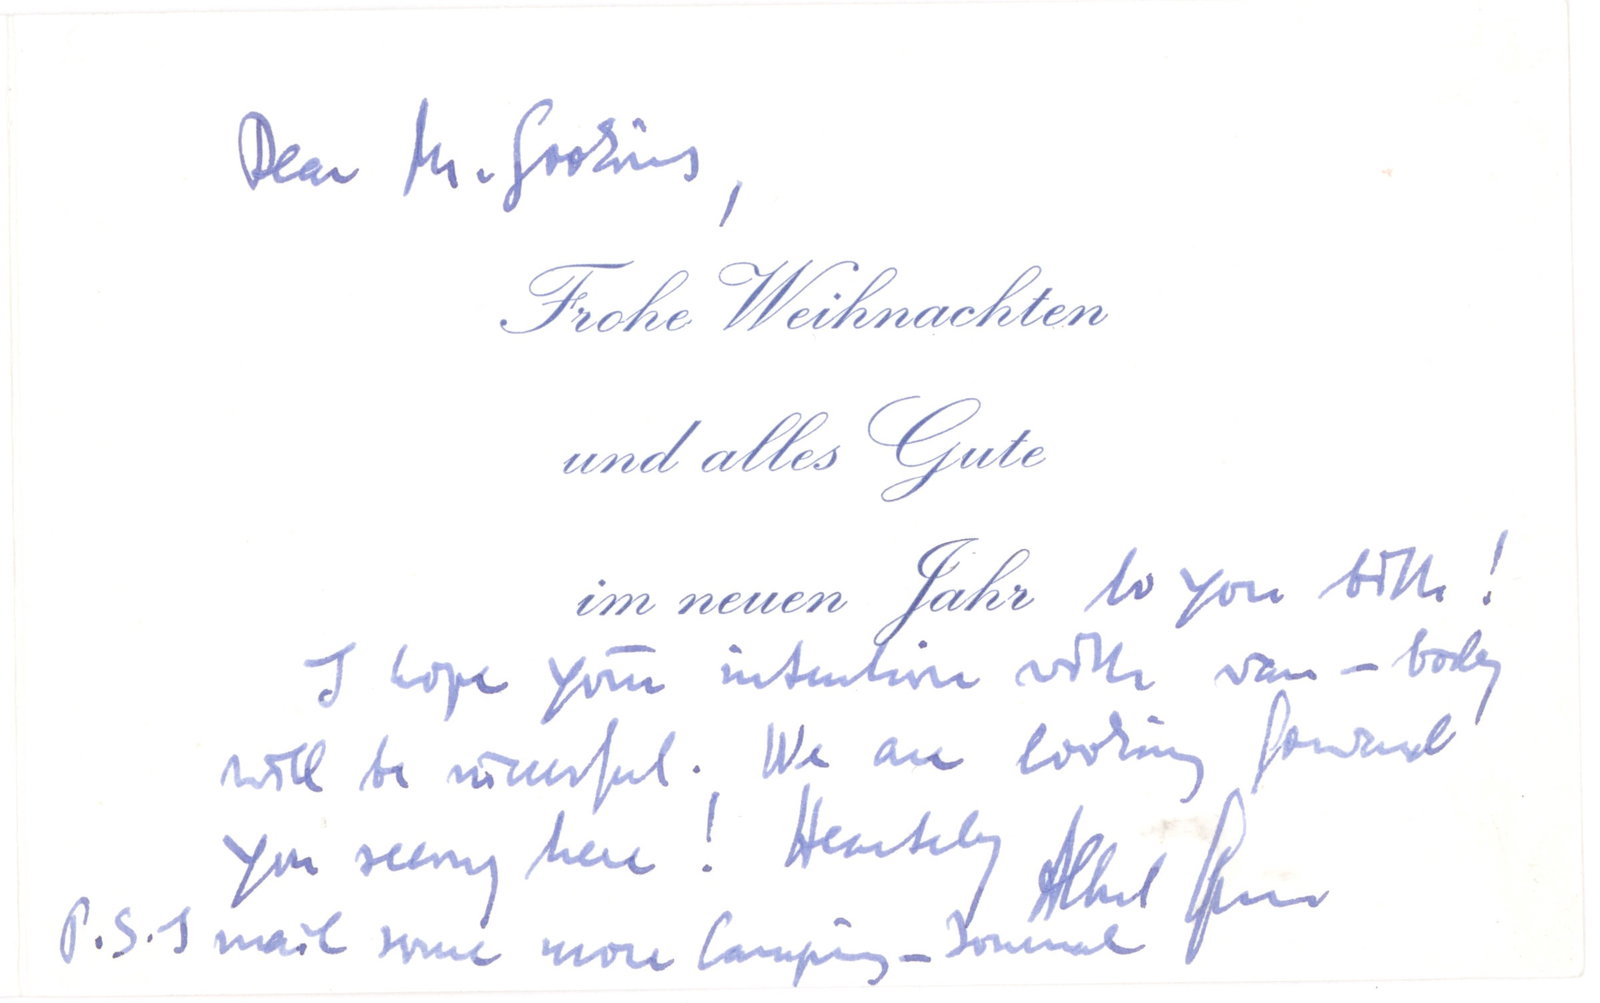 Dear Mr. Gookins,
Frohe Weihnachten
und alles Gute
im neuen Jahr to you both!
I hope your intention with van-body
will be succesful. We are looking forward
you seeing here! Heartely
Albert Speer
P.S. I mail some more Camping-Journal